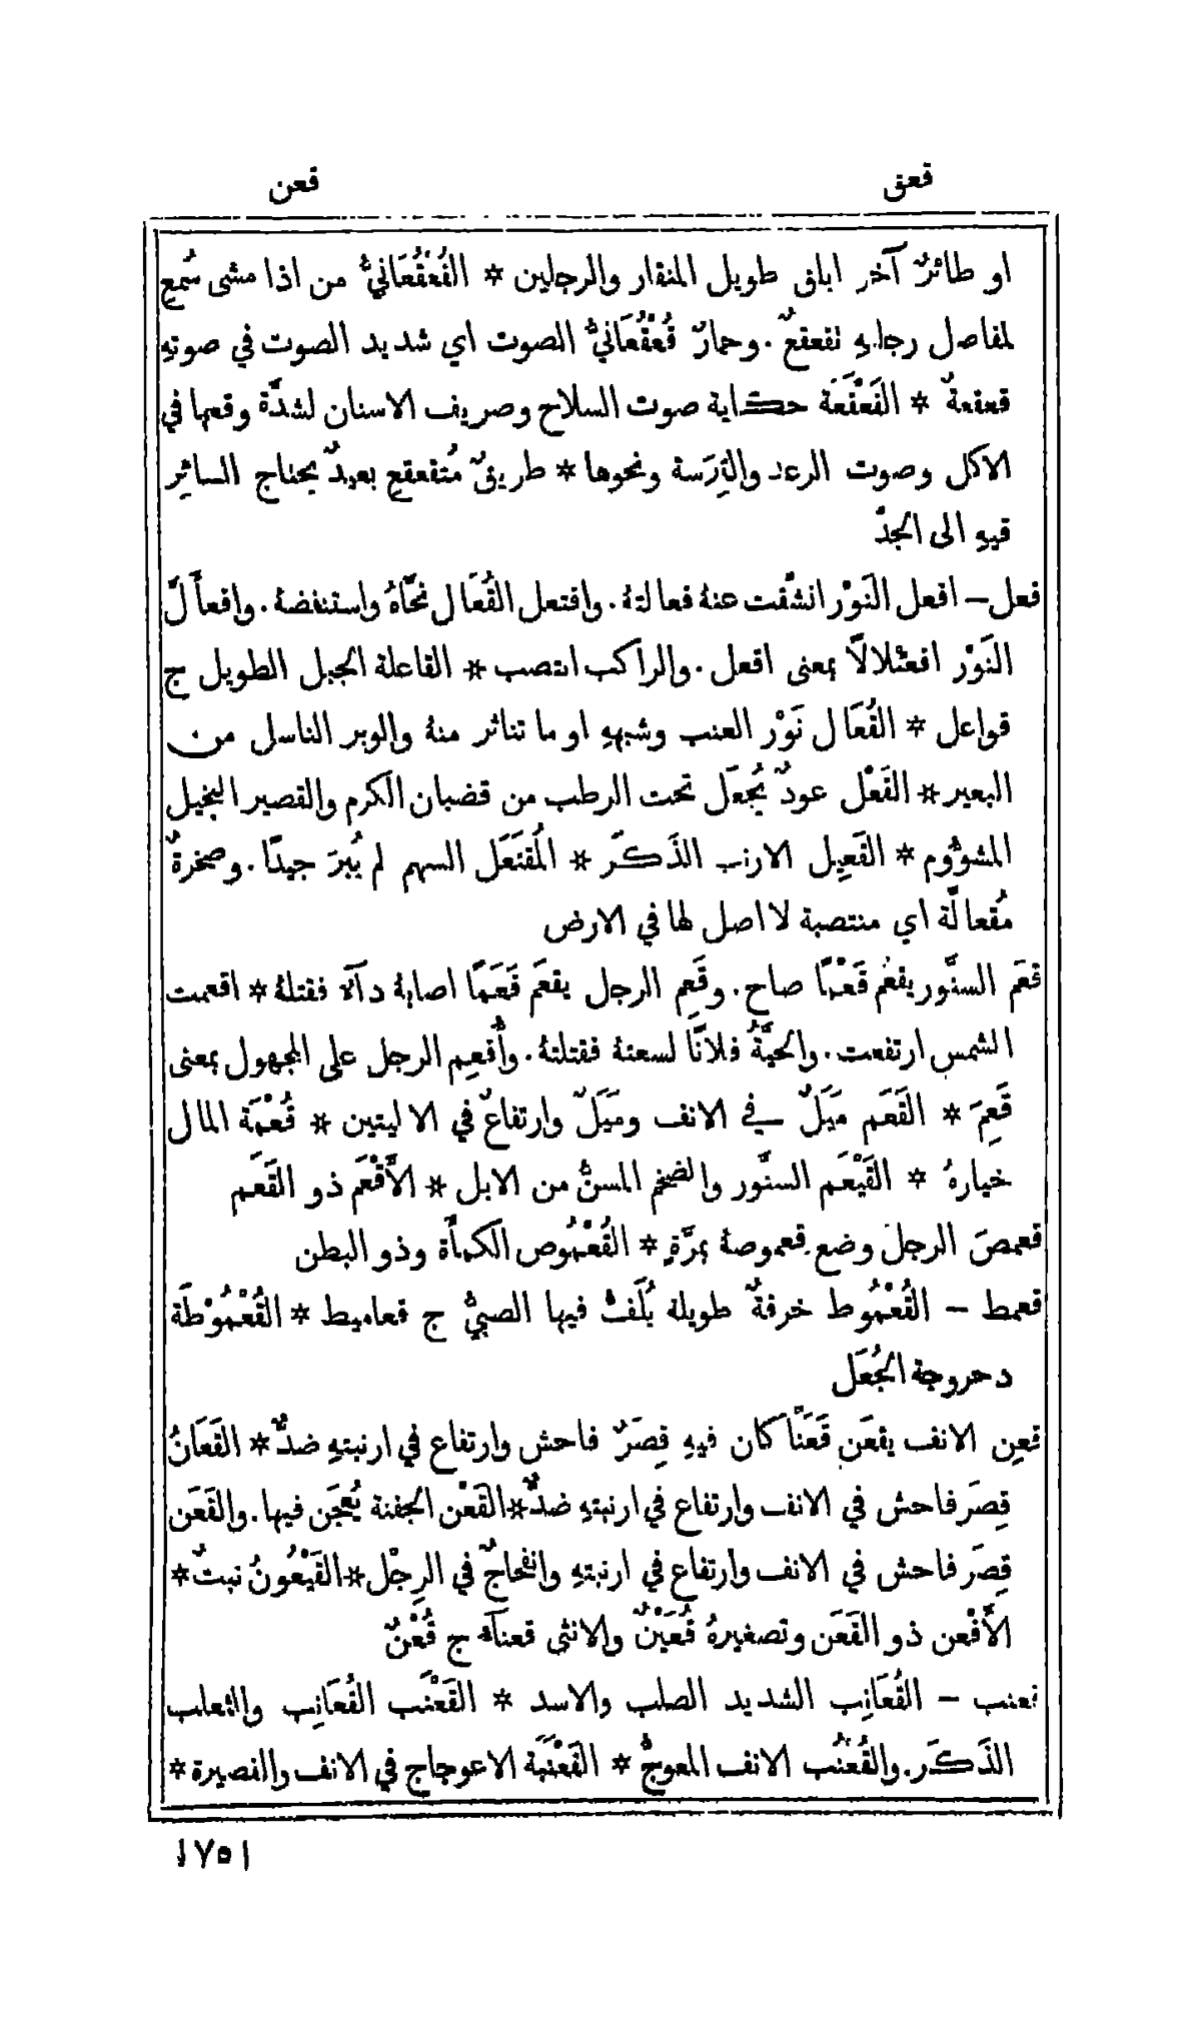 قعق
قعن
او طائرٌ آخر ابلق طويل المنقار والرجلين * القُعْقُعَانيُّ من اذا مشى سُمِع
لمفاصل رجليهِ تقعقعٌ. وحمارٌ قُعْقُعَانيُّ الصوت اي شديد الصوت في صوتهِ
قعقعةٌ * القَعْقَعَة حكاية صوت السلاح وصريف الاسنان لشدَّة وقعها في
الاكل وصوت الرعد والتِرَسة ونحوها * طريقٌ مُتقعقع بعيدٌ يحتاج السائِر
فيهِ الى الجدّ
قعل — اقعل النَوْر انشقَّت عنهُ قعالتهُ. واقتعل القُعَال نحَّاهُ واستنفضهُ. واقعأَلَّ
النَوْر اقعئلالًا بمعنى اقعل. والراكب انتصب * القاعلة الجبل الطويل ج
قواعل * القُعَال نَوْر العنب وشبههِ او ما تناثر منهُ والوبر الناسل من
البعير * القَعْل عودٌ يُجعَل تحت الرطب من قضبان الكرم والقصير البخيل
المشوُّوم * القَعِيل الارنب الذَكَر * المُقتَعَل السهم لم يُبرَ جيدًا. وصخرةٌ
مُقعالَّة اي منتصبة لا اصل لها في الارض
قعَم السنَّور يقعُم قَعْمًا صاح. وقَعِم الرجل يقعَم قَعَمًا اصابهُ دآءٌ فقتلهُ * اقعمت
الشمس ارتفعت. والحيَّةُ فلانًا لسعتهُ فقتلتهُ. وأُقعِم الرجل على المجهول بمعنى
قَعِمَ * القَعَم مَيَلٌ في الانف ومَيَلٌ وارتفاعٌ في الاليتين * قُعْمَة المال
خيارهُ * القَيْعَم السنَّور والضخم المسنُّ من الابل * الأَقْعَم ذو القَعَم
قعمصَ الرجل وضع قعموصهُ بمرَّةٍ * القُعْمُوص الكمأَة وذو البطن
قعمط — القُعْمُوط خرقةٌ طويلة يُلَفُّ فيها الصبيُّ ج قعاميط * القُعْمُوْطَة
دحروجة الجُعَل
قعِن الانف يقعَن قَعَنًا كان فيهِ قِصَرٌ فاحش وارتفاع في ارنبتهِ ضدٌّ * القَعَانُ
قِصَر فاحش في الانف وارتفاع في ارنبتهِ ضدٌّ * القَعْن الجفنة يُعجَن فيها. والقَعَن
قِصَر فاحش في الانف وارتفاع في ارنبتهِ وانفحاجٌ في الرِجْل * القَيْعُونُ نبتٌ *
الأَقْعن ذو القَعَن وتصغيرهُ قُعَيْنٌ والانثى قعنآءُ ج قُعْنٌ
قعنب — القُعَانِب الشديد الصلب والاسد * القَعْنَب القُعَانِب والثعلب
الذَكَر. والقُعْنُب الانف المعوجُّ * القَعْنَبَة الاعوجاج في الانف والقصيرة *
١٧٥١